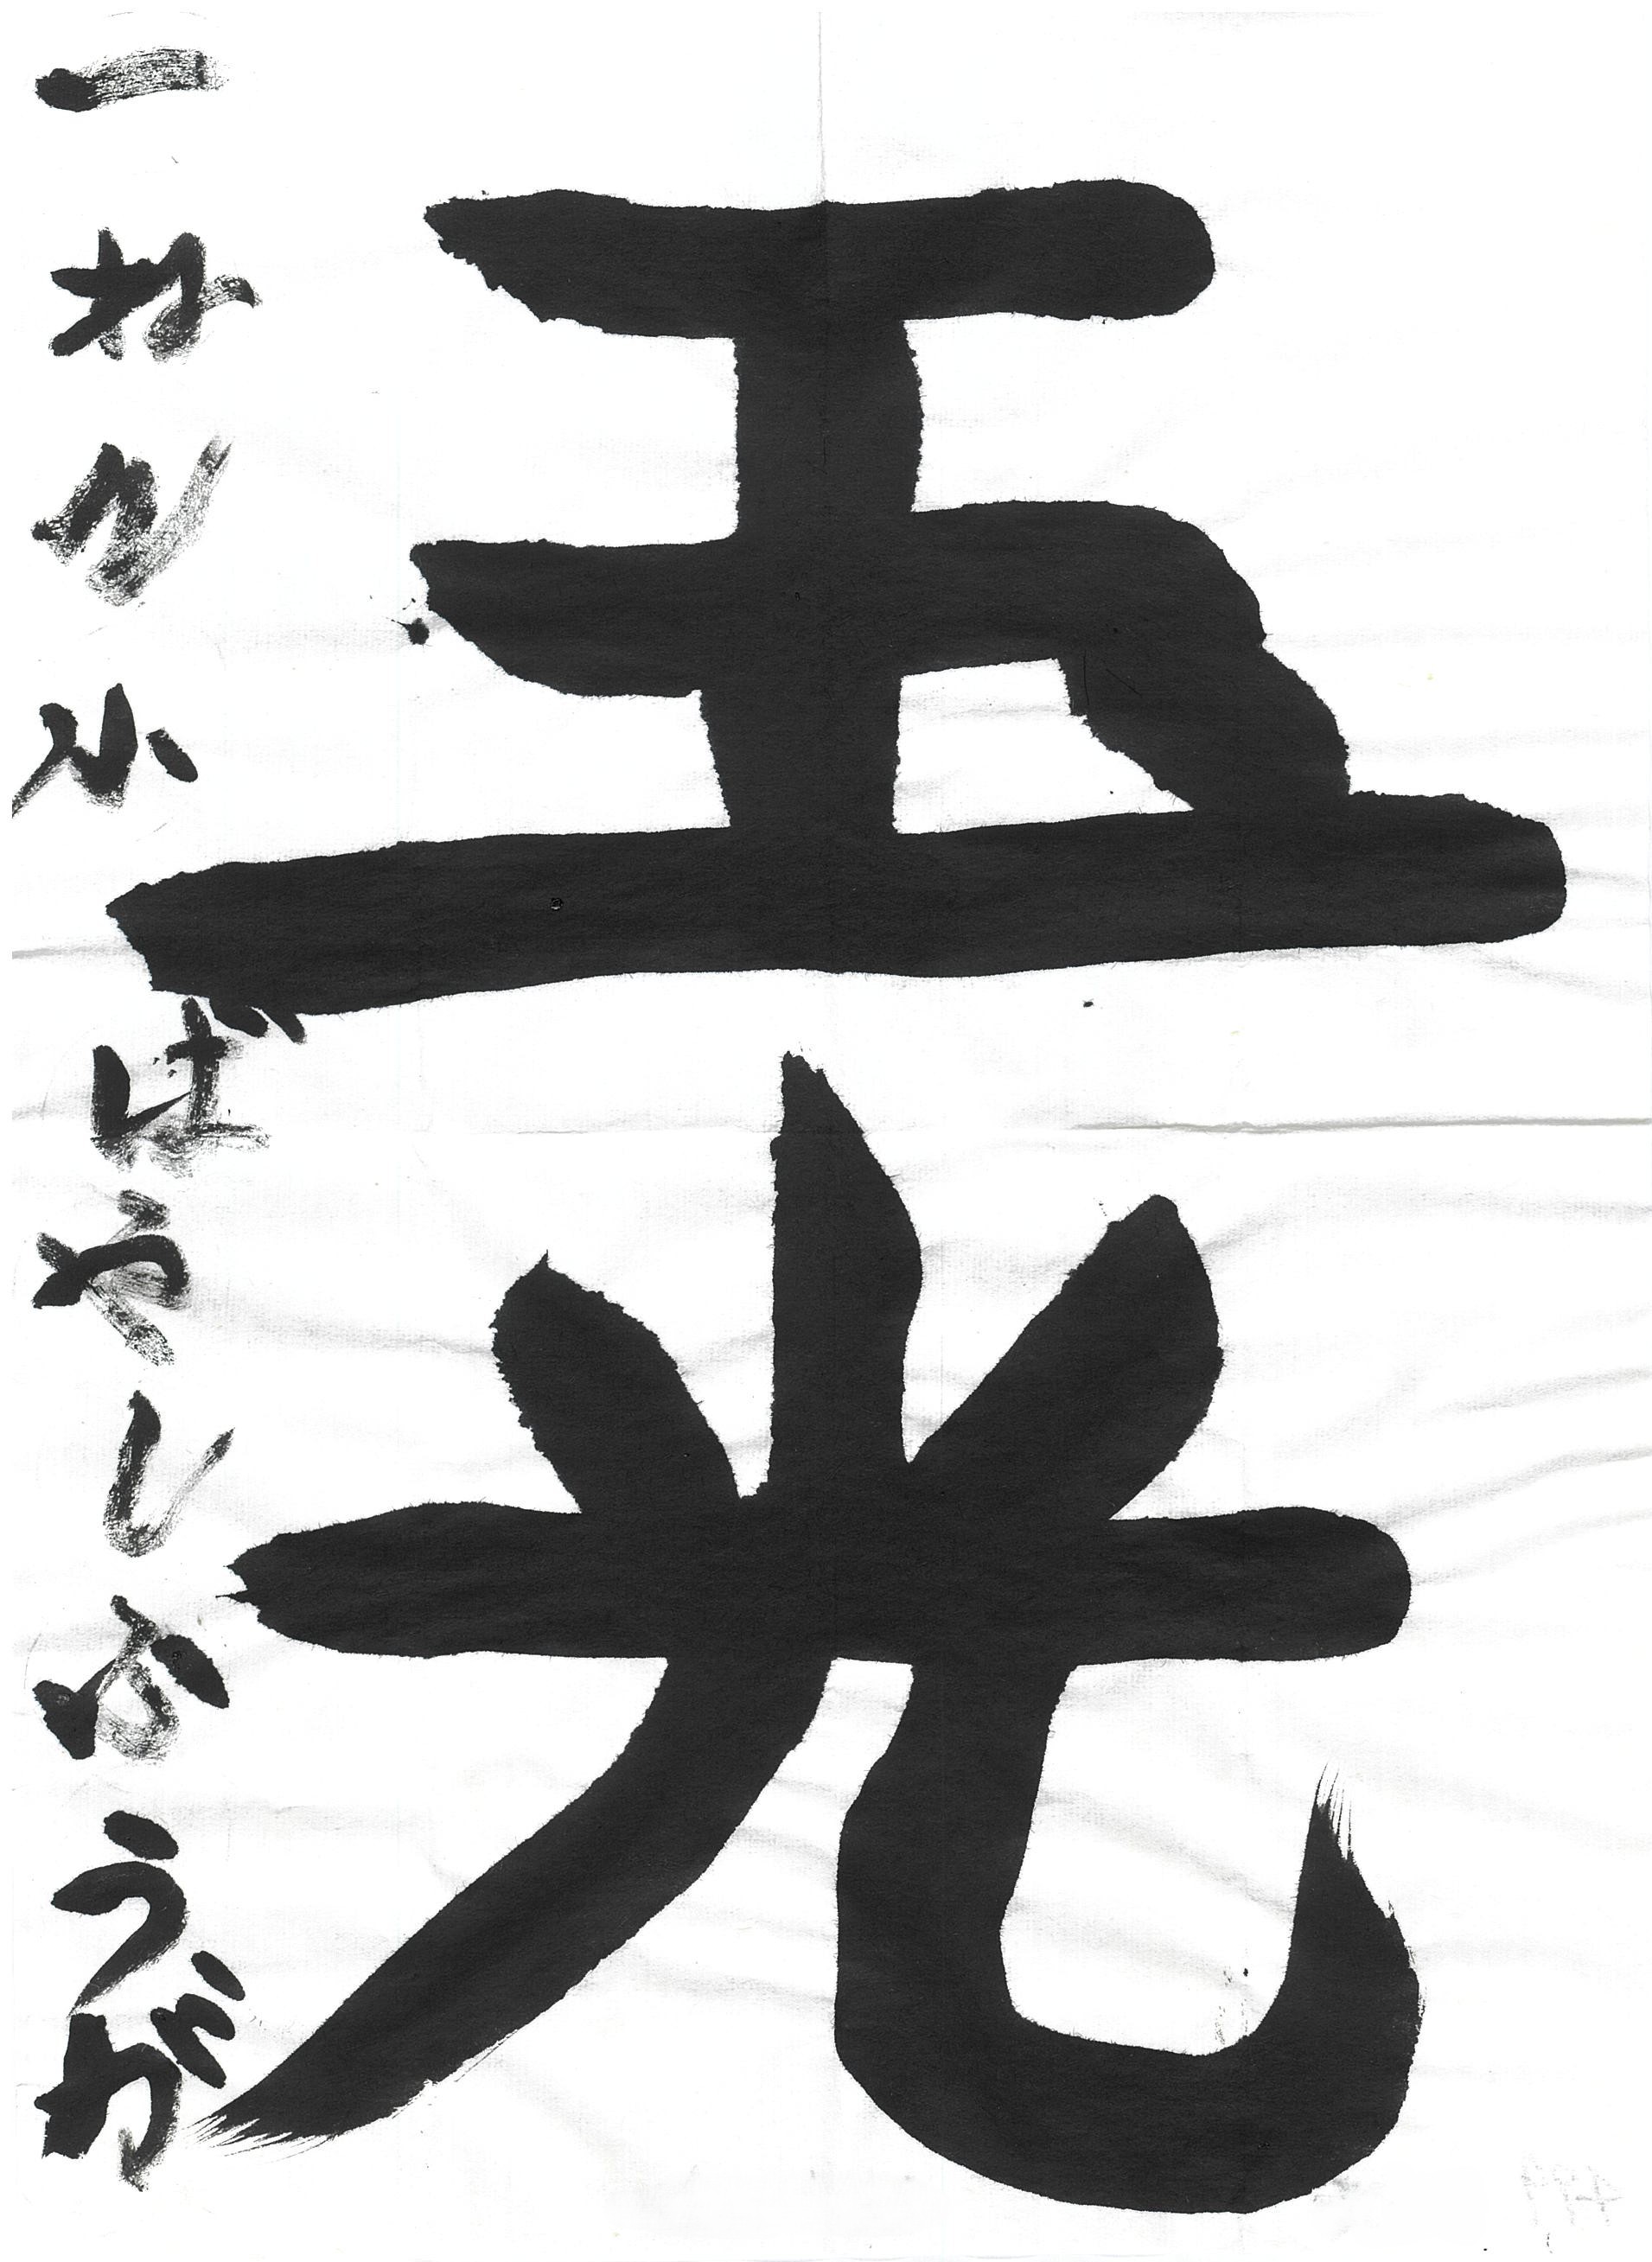 玉光
一ねん小ばやしふうが